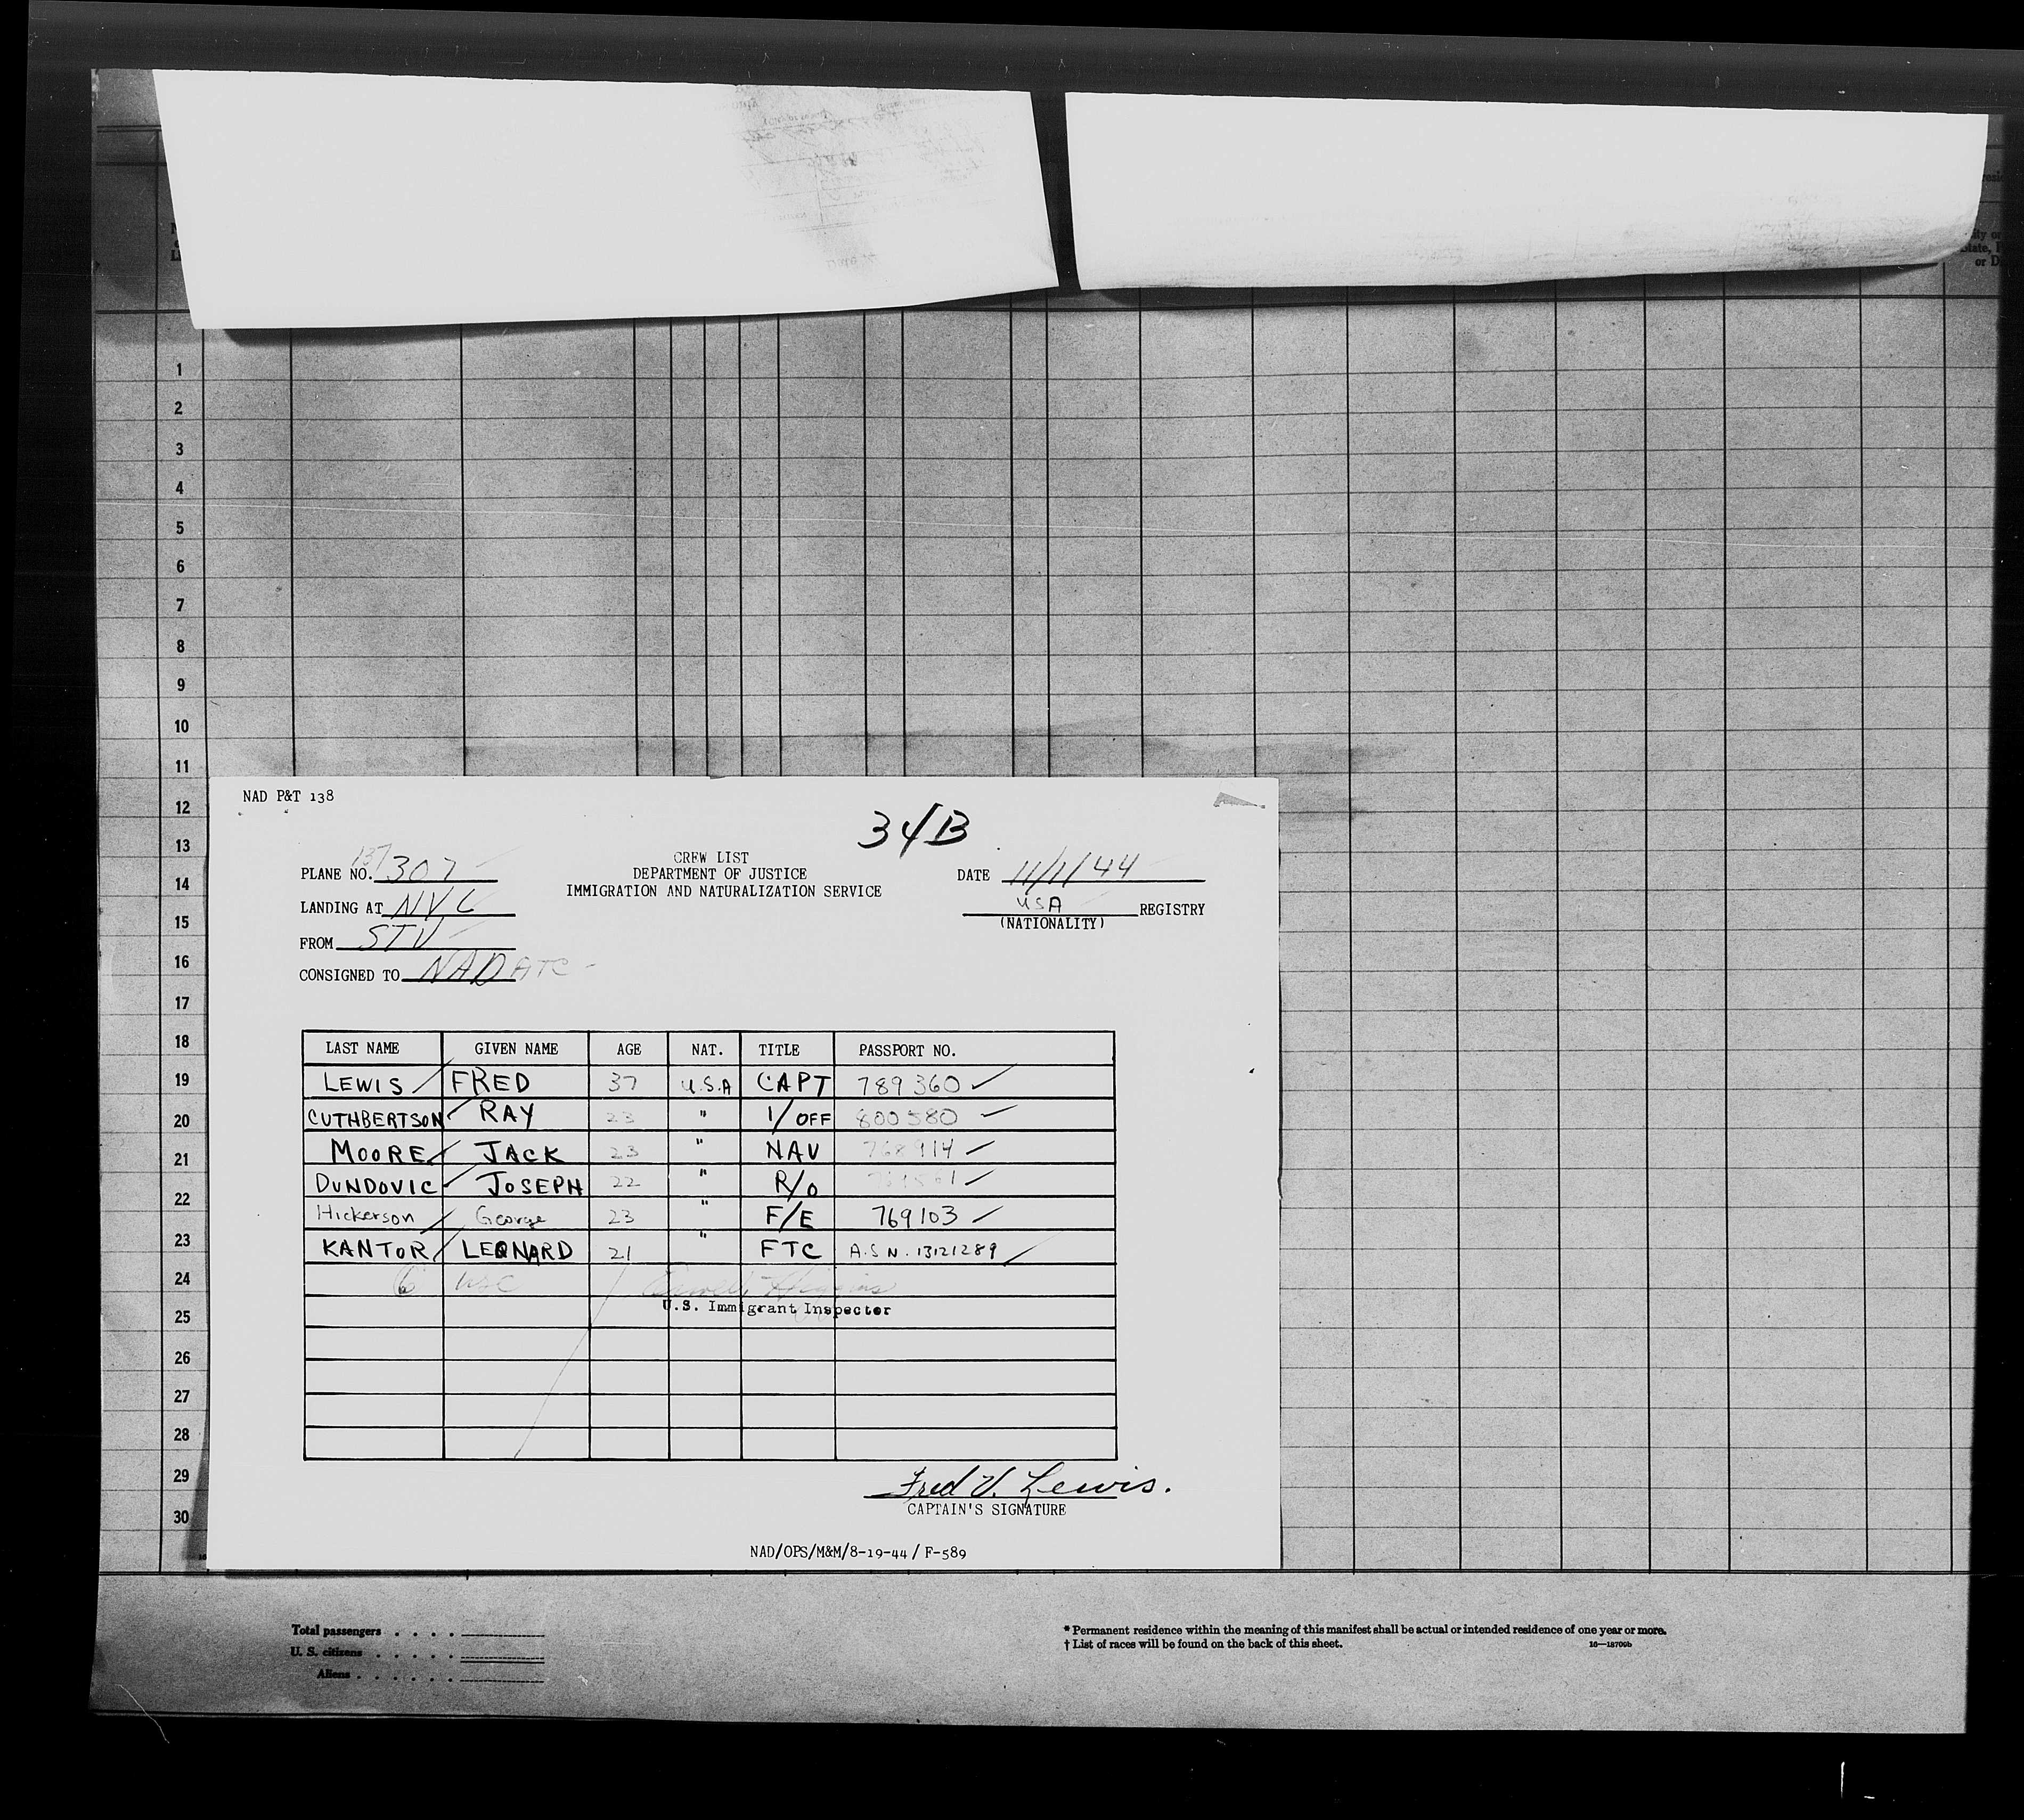 NAD P&T 138
34/B
CREW LIST
DEPARTMENT OF JUSTICE
IMMIGRATION AND NATURALIZATION SERVICE
PLANE NO. 137 307
LANDING AT NYC
FROM STV
CONSIGNED TO NAD ATC
DATE 11/1/44
USA REGISTRY
(NATIONALITY)
LAST NAME GIVEN NAME AGE NAT. TITLE PASSPORT NO.
LEWIS FRED 37 U.S.A CAPT 789360
CUTHBERTSON RAY 23 " 1/OFF 800580
MOORE JACK 23 " NAV 768914
DUNDOVIC JOSEPH 22 " R/O
Hickerson George 23 " F/E 769103
KANTOR LEONARD 21 " FTC A.S.N. 13121289
6 USC Higgins
U.S. Immigrant Inspector
Fred V. Lewis.
CAPTAIN'S SIGNATURE
NAD/OPS/M&M/8-19-44/ F-589
1
2
3
4
5
6
7
8
9
10
11
12
13
14
15
16
17
18
19
20
21
22
23
24
25
26
27
28
29
30
Total passengers
U. S. citizens
Aliens
* Permanent residence within the meaning of this manifest shall be actual or intended residence of one year or more.
† List of races will be found on the back of this sheet.
16—18700b